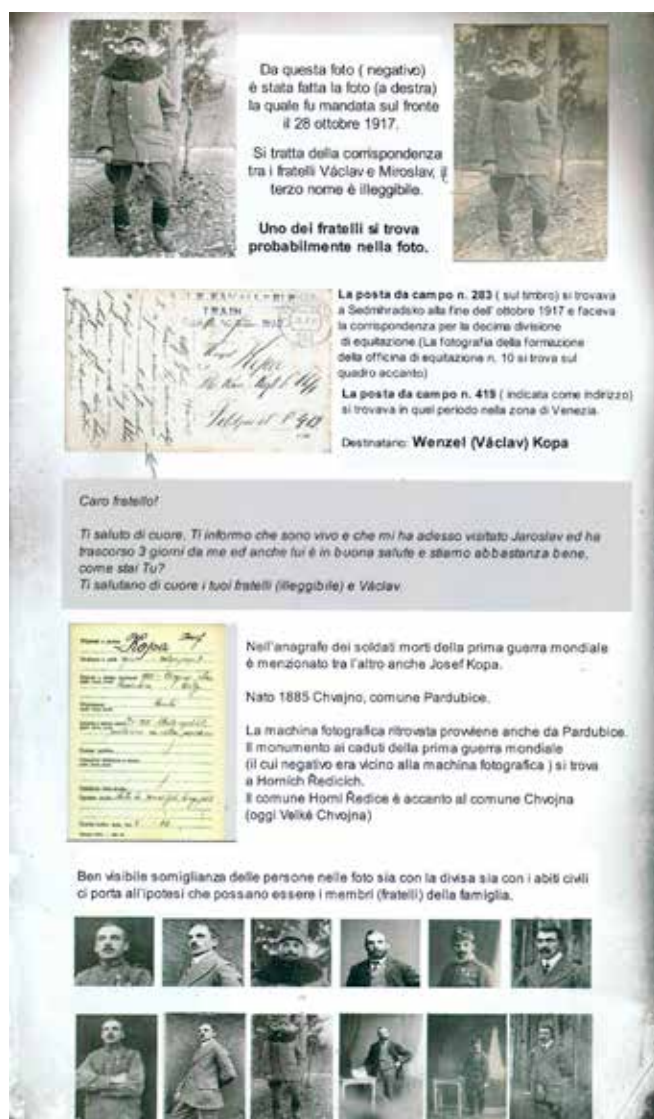 Da questa foto ( negativo)
è stata fatta la foto (a destra)
la quale fu mandata sul fronte
il 28 ottobre 1917.
Si tratta della corrispondenza
tra i fratelli Václav e Miroslav, il
terzo nome è illeggibile.
Uno dei fratelli si trova
probabilmente nella foto.
La posta da campo n. 283 ( sul timbro) si trovava
a Sedmihradsko alla fine dell' ottobre 1917 e faceva
la corrispondenza per la decima divisione
di equitazione.(La fotografia della formazione
della officina di equitazione n. 10 si trova sul
quadro accanto)
La posta da campo n. 419 ( indicata come indirizzo)
si trovava in quel periodo nella zona di Venezia.
Destinatario: Wenzel (Václav) Kopa
TRAIN
Kopa
Caro fratello!
Ti saluto di cuore, Ti informo che sono vivo e che mi ha adesso visitato Jaroslav ed ha
trascorso 3 giorni da me ed anche lui è in buona salute e stiamo abbastanza bene,
come stai Tu?
Ti salutano di cuore i tuoi fratelli (illeggibile) e Václav
Kopa
Nell'anagrafe dei soldati morti della prima guerra mondiale
è menzionato tra l'altro anche Josef Kopa.
Nato 1885 Chvajno, comune Pardubice.
La machina fotografica ritrovata provviene anche da Pardubice.
Il monumento ai caduti della prima guerra mondiale
(il cui negativo era vicino alla machina fotografica ) si trova
a Horních Ředicích.
Il comune Horní Ředice è accanto al comune Chvojna
(oggi Velké Chvojna)
Ben visibile somiglianza delle persone nelle foto sia con la divisa sia con i abiti civili
ci porta all'ipotesi che possano essere i membri (fratelli) della famiglia.